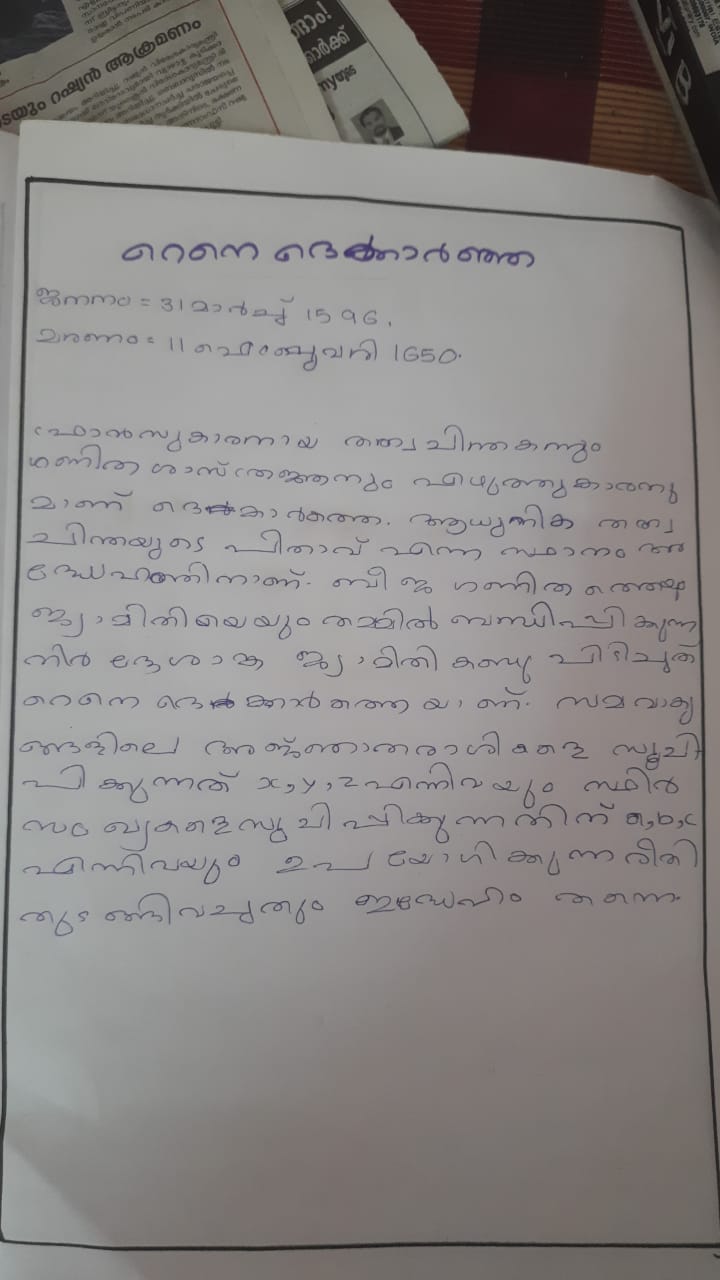 ടെയും റഷ്യൻ ആക്രമണം
ണ്ടാം!
ാർക്ക്
B
റെനെ ദെക്കാർത്തെ
ജനനം = 31 മാർച്ച് 1596.
മരണം = 11 ഫെബ്രുവരി 1650.
ഫ്രാൻസുകാരനായ തത്വചിന്തകനും
ഗണിത ശാസ്ത്രജ്ഞനും എഴുത്തുകാരനു
മാണ് ദെകാർത്തെ. ആധുനിക തത്വ
ചിന്തയുടെ പിതാവ് എന്ന സ്ഥാനം അ
ദ്ദേഹത്തിനാണ്. ബീജ ഗണിതത്തെയും
ജ്യാമിതിയെയും തമ്മിൽ ബന്ധിപ്പിക്കുന്ന
നിർദ്ദേശാങ്ക ജ്യാമിതി കണ്ടു പിടിച്ചത്
റെനെ ദെക്കാർത്തെയാണ്. സമവാക്യ
ങ്ങളിലെ അജ്ഞാതരാശികളെ സൂചി
പിക്കുന്നത് x, y, z എന്നിവയും സ്ഥിര
സംഖ്യകളെ സൂചിപ്പിക്കുന്നതിന് a, b, c
എന്നിവയും ഉപയോഗിക്കുന്ന രീതി
തുടങ്ങിവച്ചതും ഇദ്ദേഹം തന്നെ.